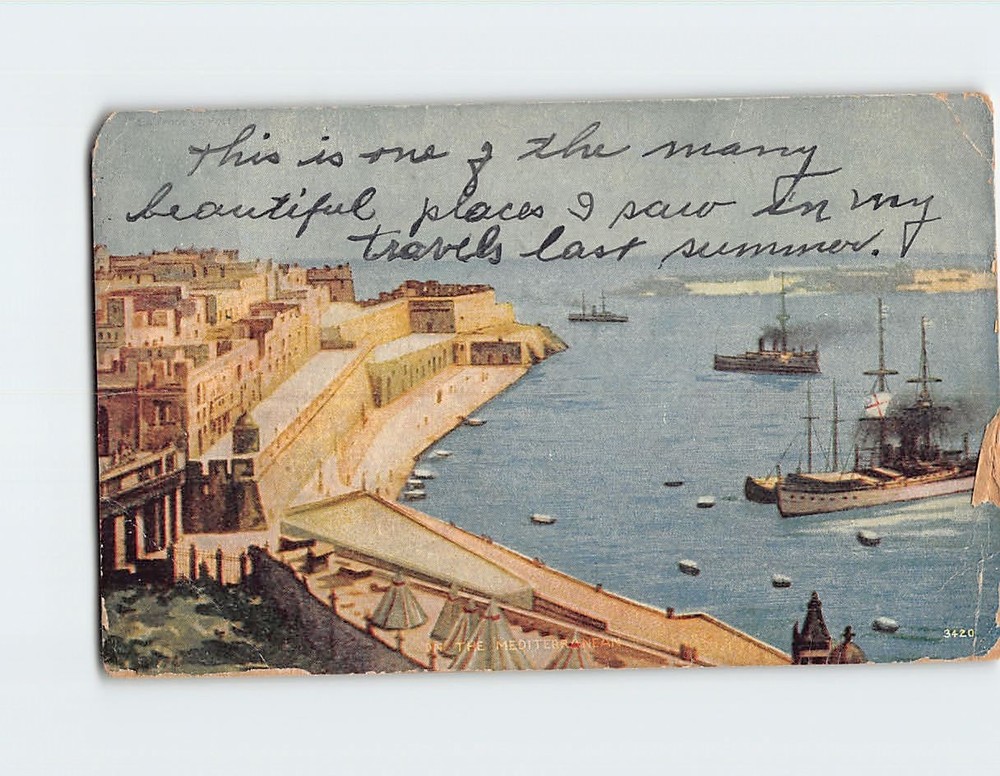 This is one of the many
beautiful places I saw in my
travels last summer.
IN THE MEDITERRANEAN
3420